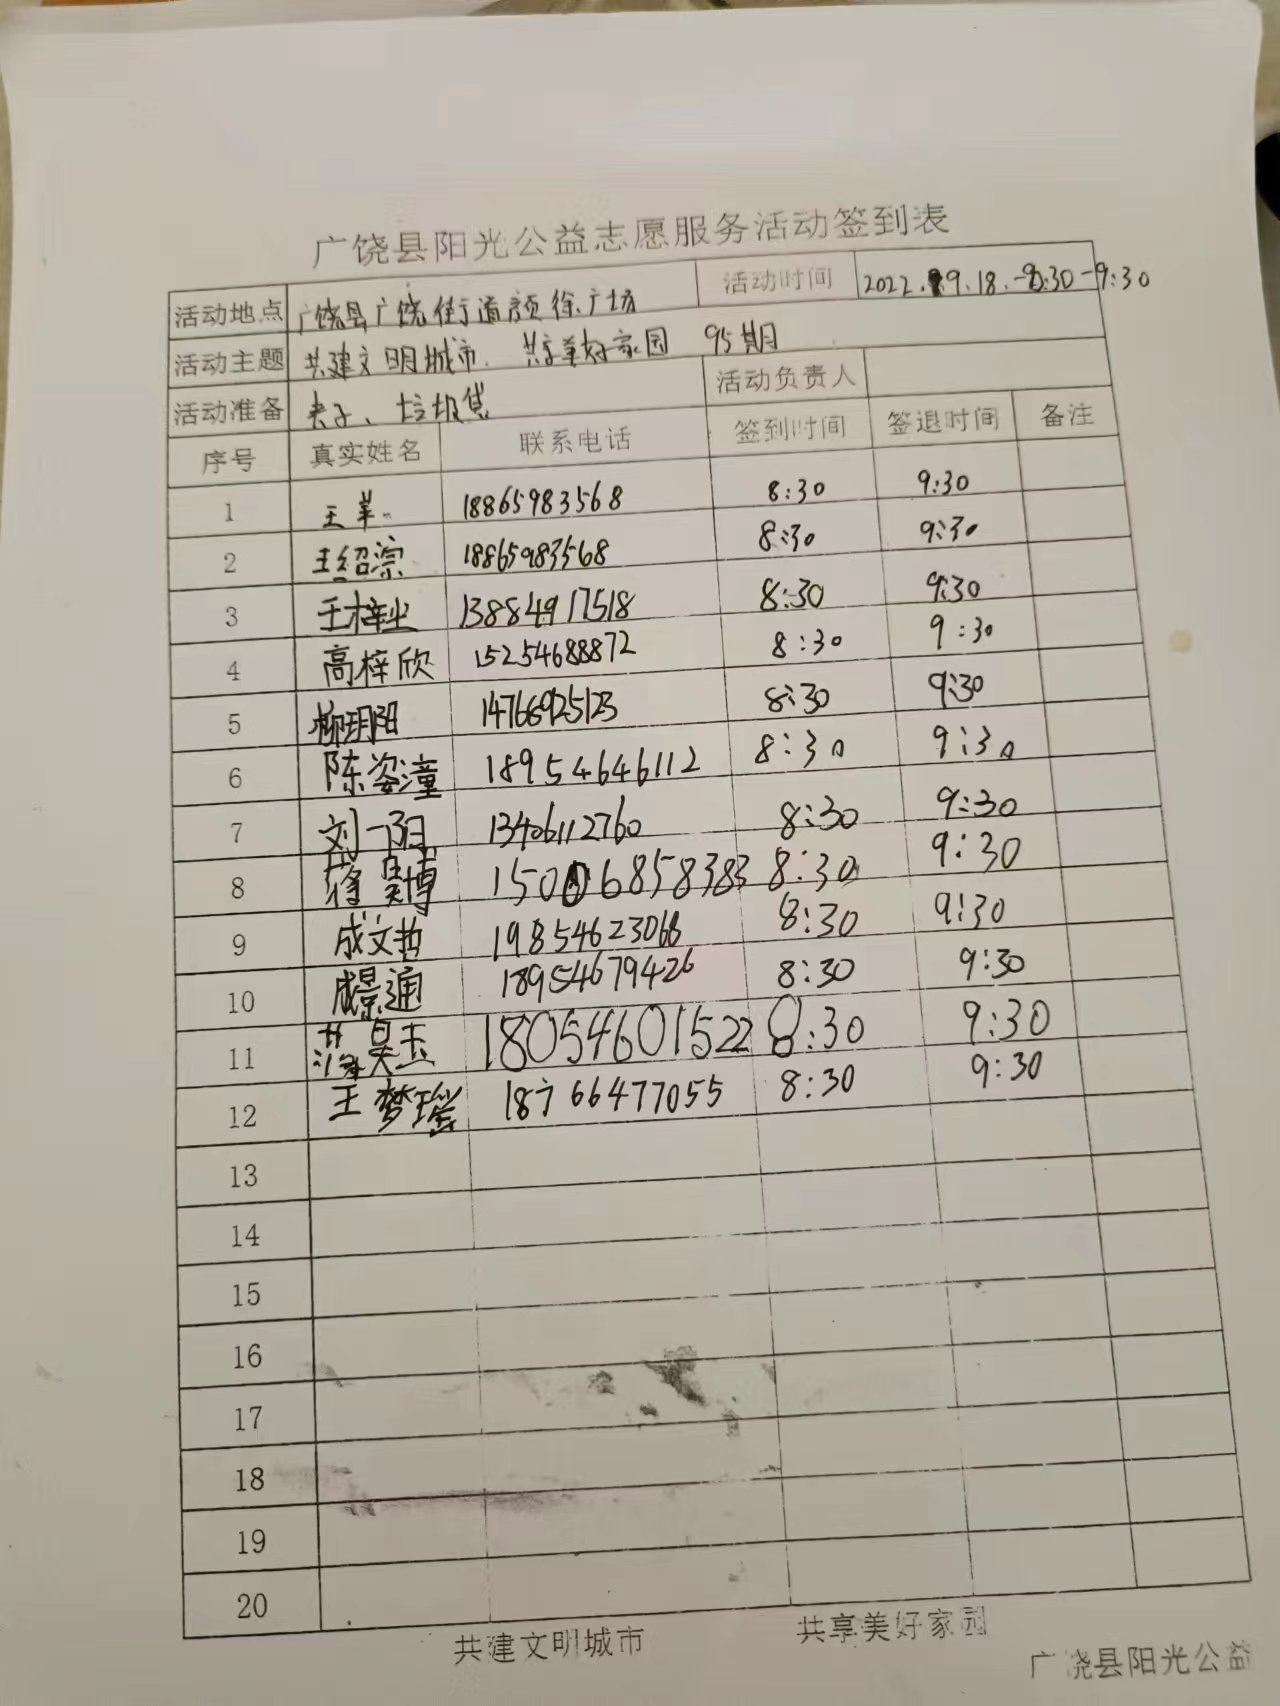 广饶县阳光公益志愿服务活动签到表
活动地点 广饶县广饶街道颜徐广场 活动时间 2022.9.18.-8:30-9:30
活动主题 共建文明城市、共享美好家园 95期
活动准备 夹子、垃圾袋 活动负责人
序号 真实姓名 联系电话 签到时间 签退时间 备注
1 王 18865983568 8:30 9:30
2 王绍淙 18865983568 8:30 9:30
3 王梓 13884917518 8:30 9:30
4 高梓欣 15254688872 8:30 9:30
5 柳玥阳 14766925123 8:30 9:30
6 陈姿潼 18954646112 8:30 9:30
7 刘一阳 13406112760 8:30 9:30
8 昊博 15006858383 8:30 9:30
9 成文哲 19854623066 8:30 9:30
10 成景通 18954679426 8:30 9:30
11 昊 18054601522 8:30 9:30
12 王梦瑶 18766477055 8:30 9:30
13
14
15
16
17
18
19
20
共建文明城市 共享美好家园
广饶县阳光公益